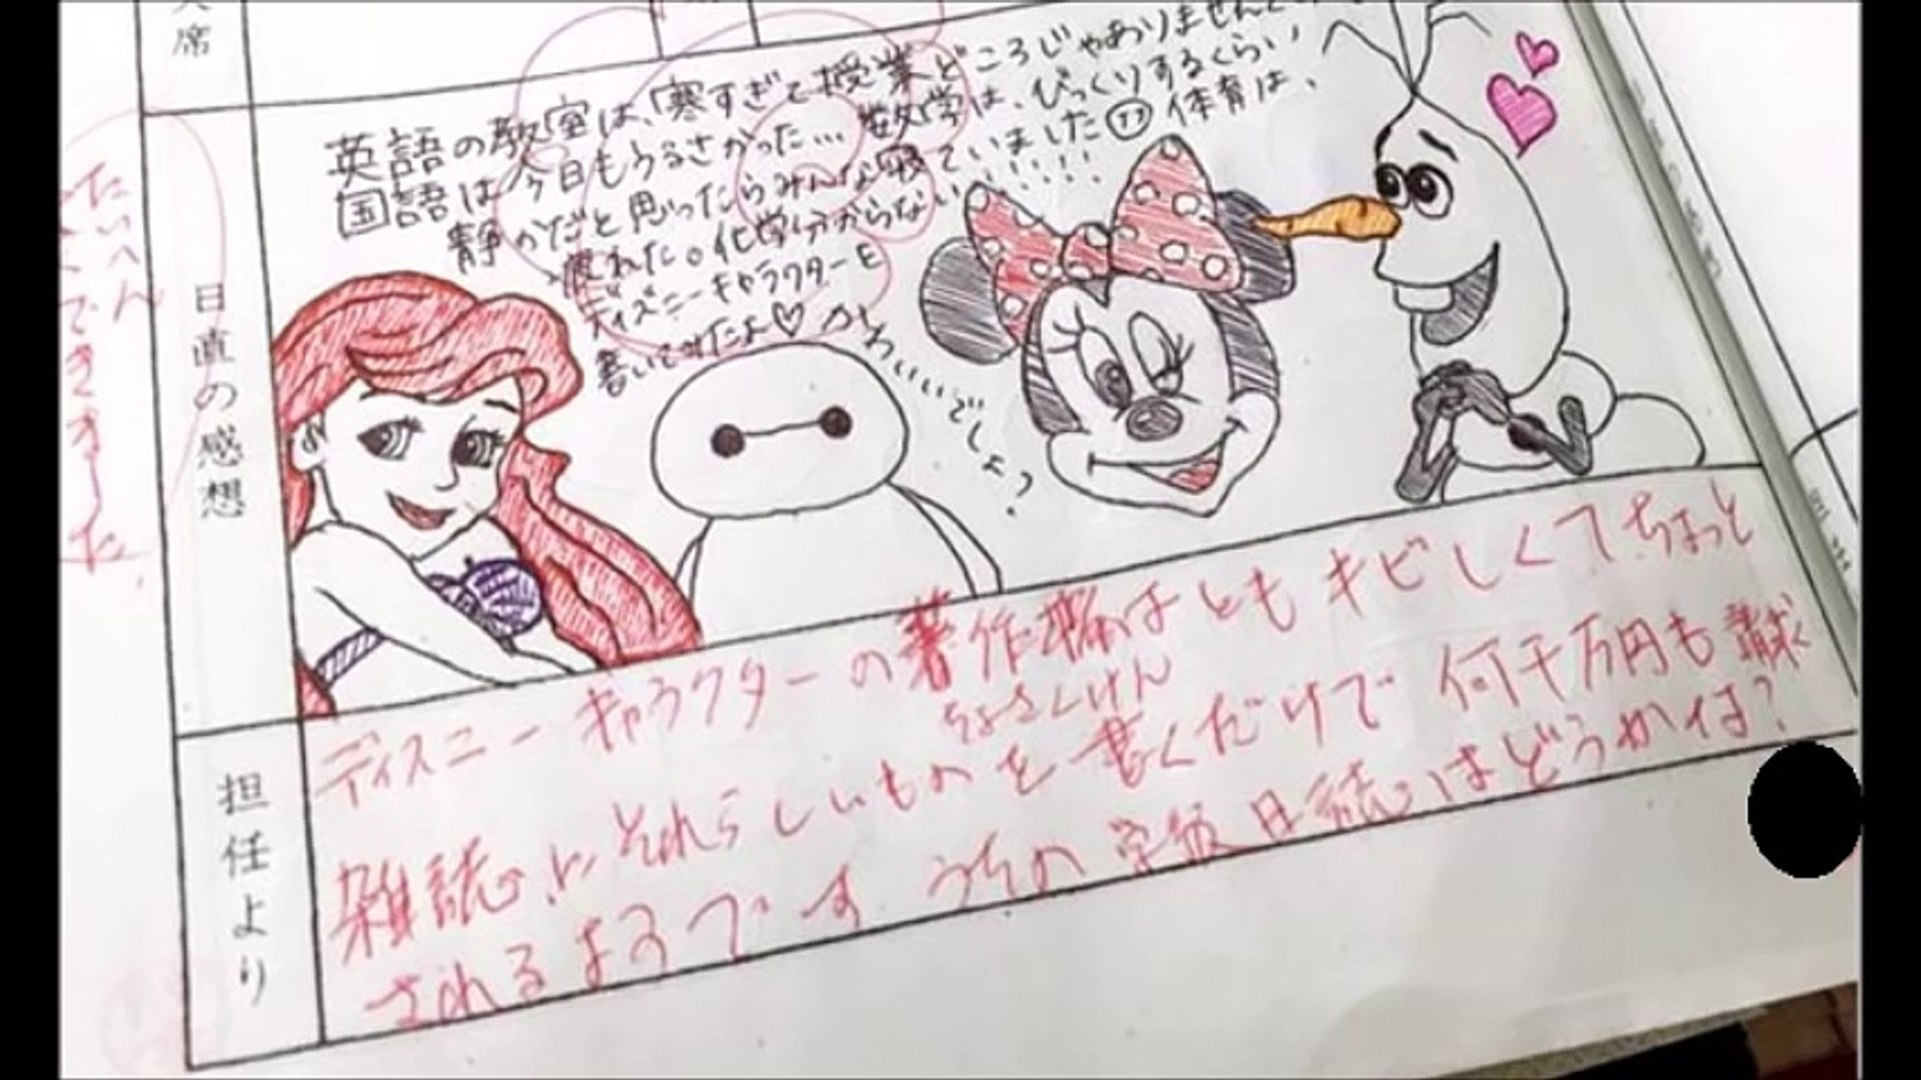 席
日直の感想
英語の教室は、寒すぎて授業どころじゃありません
国語は今日もうるさかった… 数学は、びっくりするくらい
静かだと思ったらみんな寝ていました 体育は、
疲れた。化学分からない!!!!!!
ディズニーキャラクターを
書いてみたよ♡ かわいいでしょ?
たいへん
よくできました
担任より
ディズニーキャラクターの著作権はとてもキビしくてちょっと
ちょさくけん
雑誌にそれらしいものを書くだけで何千万円も請求
されるようです うちの学級日誌はどうかは?